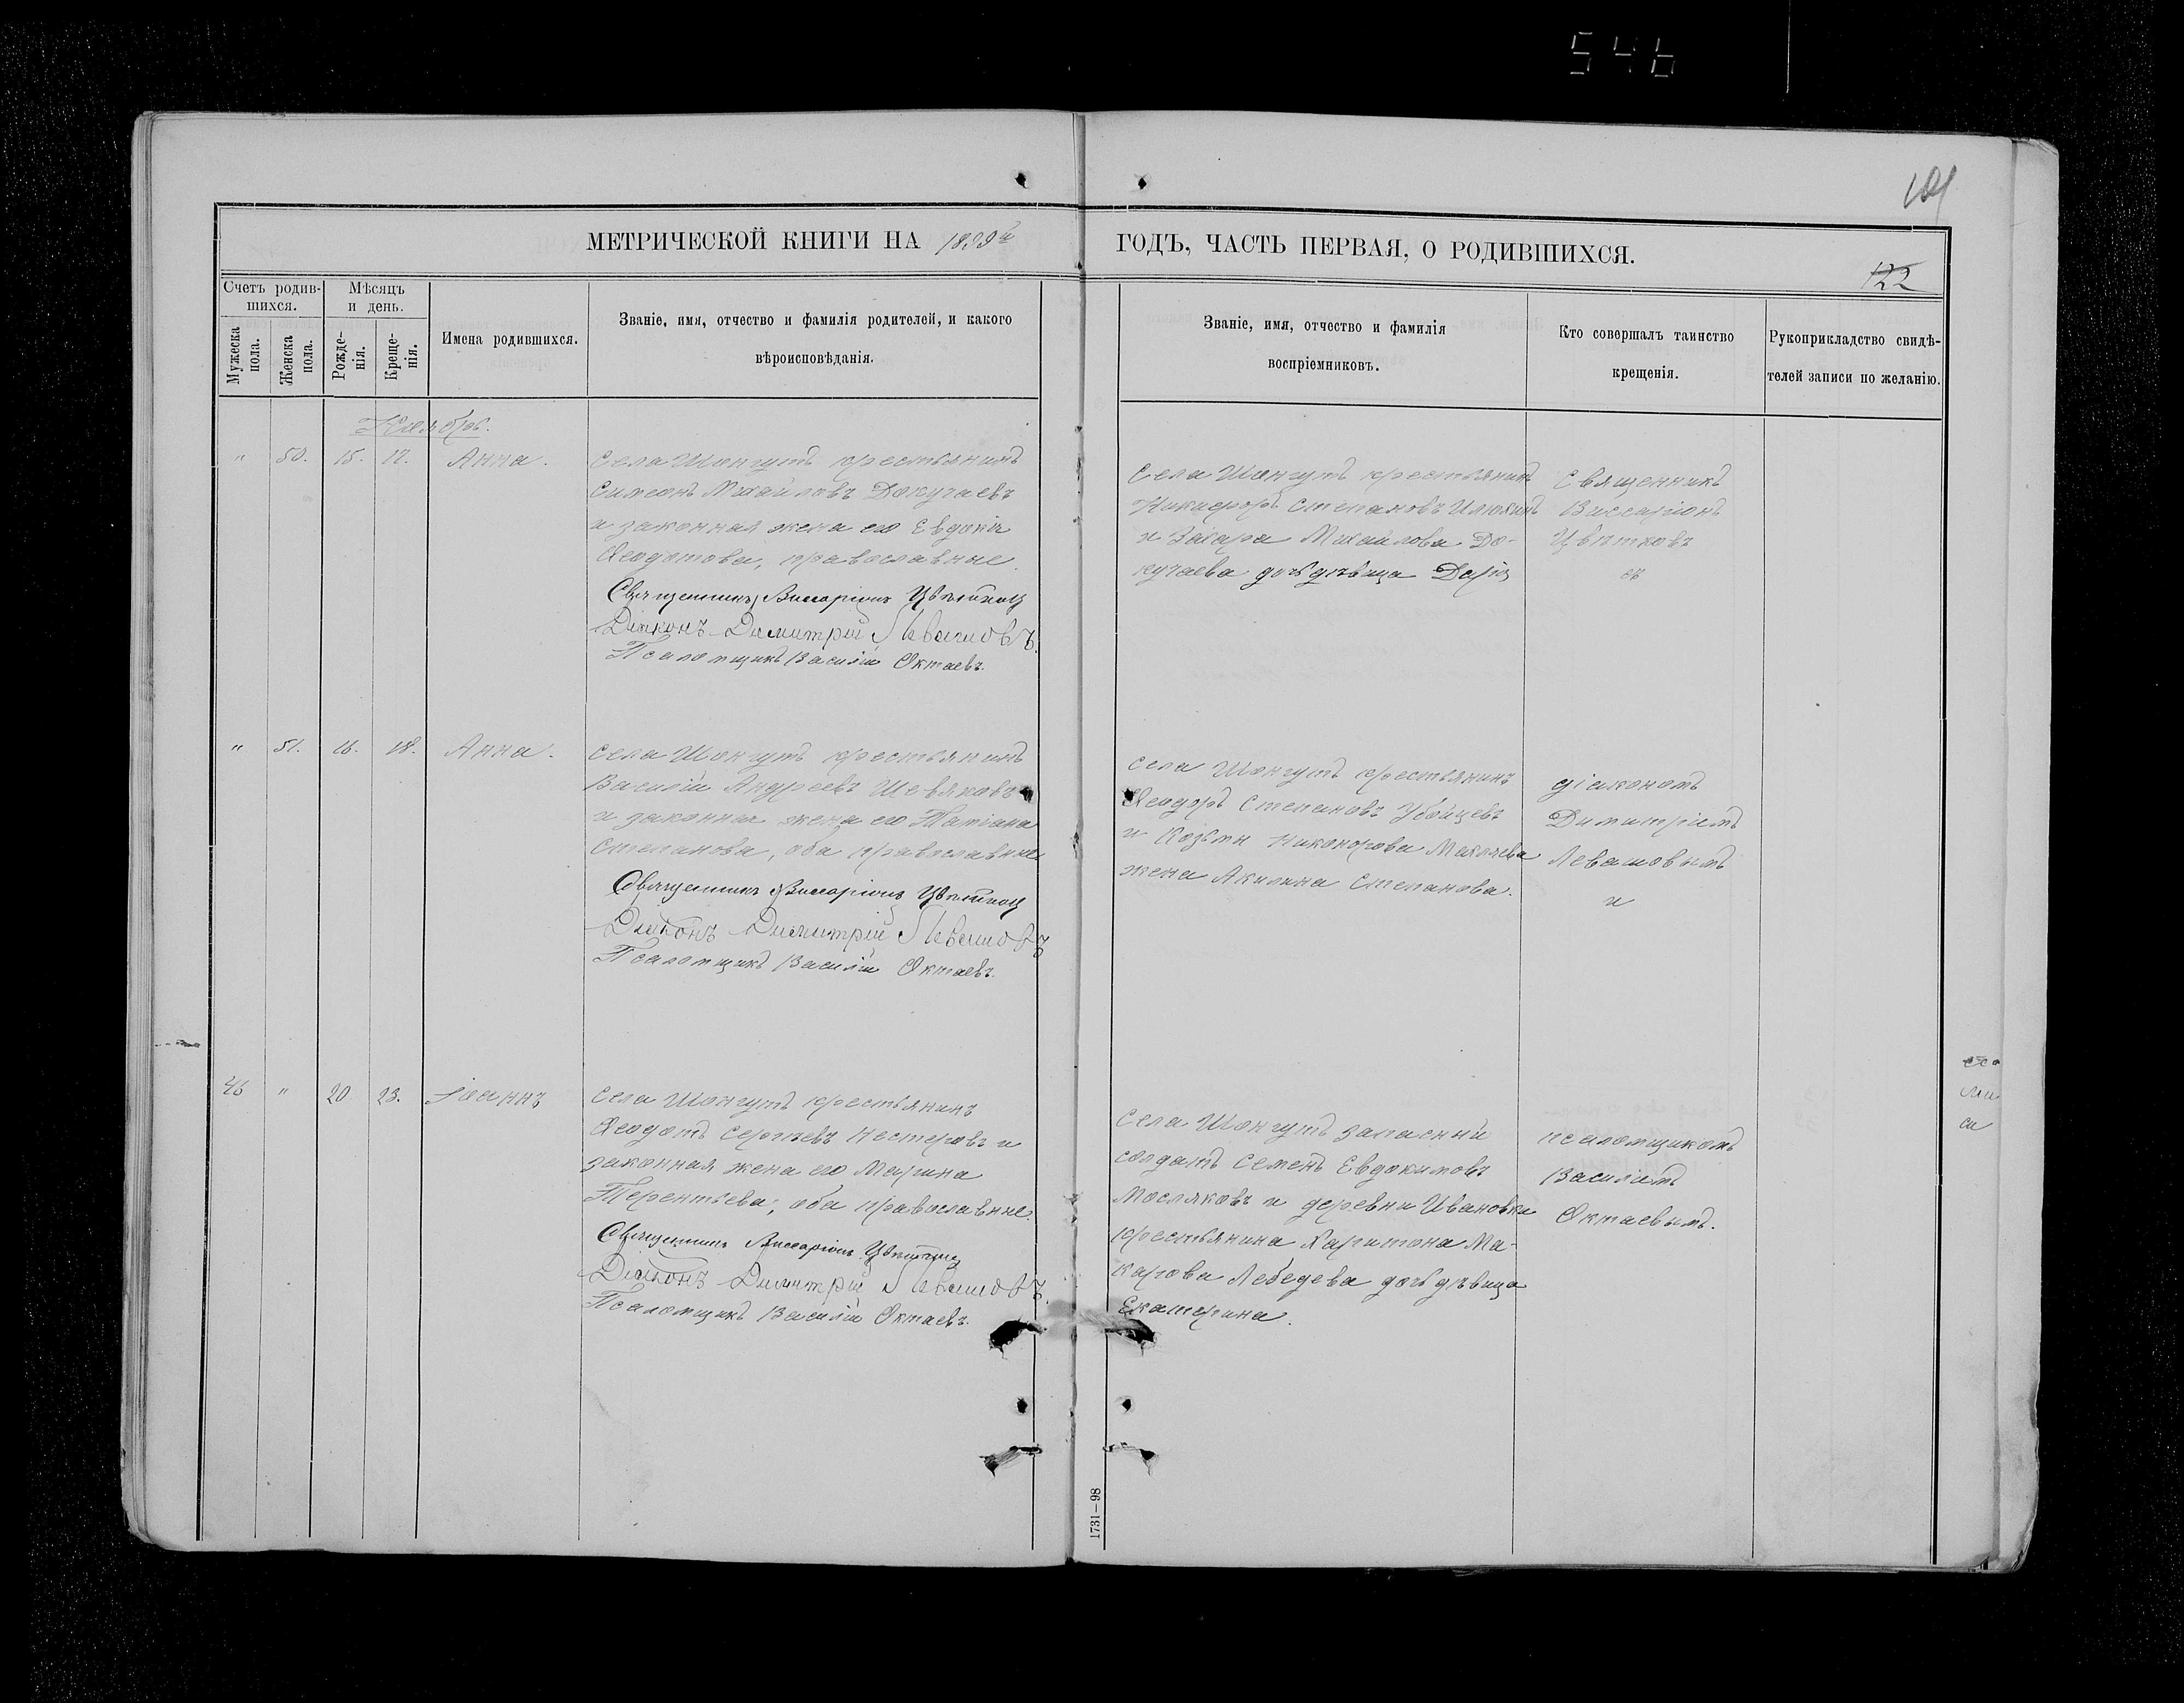 546
МЕТРИЧЕСКОЙ КНИГИ НА 1899й ГОДЪ, ЧАСТЬ ПЕРВАЯ, О РОДИВШИХСЯ.
122
Счетъ родив-
шихся.
Мужеска
пола.
Женска
пола.
Мѣсяцъ
и день.
Рожде-
нія.
Креще-
нія.
Имена родившихся.
Званіе, имя, отчество и фамилія родителей, и какого
вѣроисповѣданія.
Званіе, имя, отчество и фамилія
воспріемниковъ.
Кто совершалъ таинство
крещенія.
Рукоприкладство свидѣ-
телей записи по желанію.
" 50. 15. 17. Анна.
Села Шонгутъ крестьянинъ
Симеонъ Михайловъ Докучаевъ
и законная жена его Евдокія
Ѳеодотова, православные.
Священникъ Виссаріонъ Цвѣтковъ
Діаконъ Димитрій Левашовъ.
Псаломщикъ Василій Октаевъ.
Села Шонгутъ крестьянинъ
Никифоръ Степановъ Илюхинъ
и Захара Михайлова До-
кучаева дочь дѣвица Дарія
Священникъ
Виссаріонъ
Цвѣтковъ
съ
" 51. 16. 18. Анна.
Села Шонгутъ крестьянинъ
Василій Андреевъ Шевляковъ
и законная жена его Татіана
Степанова, оба православные
Священникъ Виссаріонъ Цвѣтковъ
Діаконъ Димитрій Левашовъ
Псаломщикъ Василій Октаевъ.
Села Шонгутъ крестьянинъ
Ѳеодоръ Степановъ Убойцевъ
и Козьмы Никонорова Махляева
жена Акилина Степанова.
діакономъ
Димитріемъ
Левашовымъ
и
46 " 20 23. Іоаннъ
Села Шонгутъ крестьянинъ
Ѳеодотъ Сергѣевъ Нестеровъ и
законная жена его Марина
Терентьева; оба православные.
Священникъ Виссаріонъ Цвѣтковъ
Діаконъ Димитрій Левашовъ.
Псаломщикъ Василій Октаевъ.
Села Шонгутъ запасный
солдатъ Семенъ Евдокимовъ
Мосляковъ и деревни Ивановки
крестьянина Харитона Ма-
карова Лебедева дочь дѣвица
Екатерина.
псаломщикомъ
Василіемъ
Октаевымъ.
1731—98